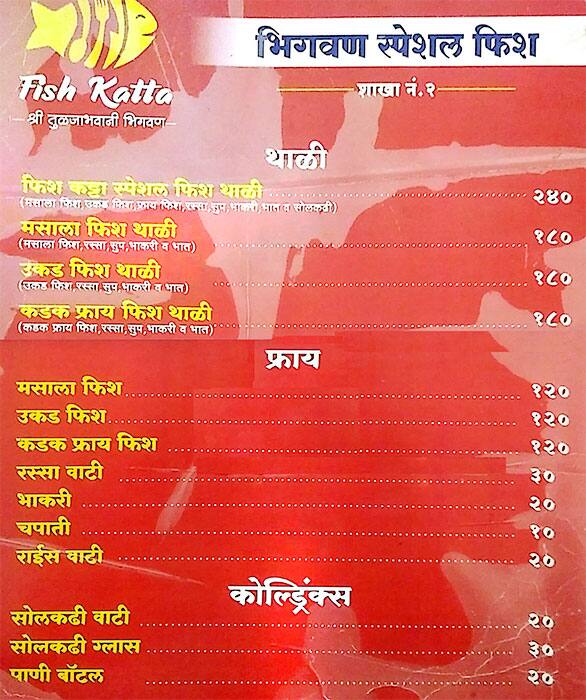 Fish Katta
श्री तुळजाभवानी भिगवण
भिगवण स्पेशल फिश
शाखा नं.२
थाळी
फिश कट्टा स्पेशल फिश थाळी २४०
(मसाला फिश,उकड फिश,फ्राय फिश,रस्सा,सुप,भाकरी,भात व सोलकढी)
मसाला फिश थाळी १८०
(मसाला फिश,रस्सा,सुप,भाकरी व भात)
उकड फिश थाळी १८०
(उकड फिश,रस्सा,सुप,भाकरी व भात)
कडक फ्राय फिश थाळी १८०
(कडक फ्राय फिश,रस्सा,सुप,भाकरी व भात)
फ्राय
मसाला फिश १२०
उकड फिश १२०
कडक फ्राय फिश १२०
रस्सा वाटी ३०
भाकरी २०
चपाती १०
राईस वाटी २०
कोल्ड्रिंक्स
सोलकढी वाटी २०
सोलकढी ग्लास ३०
पाणी बॉटल २०